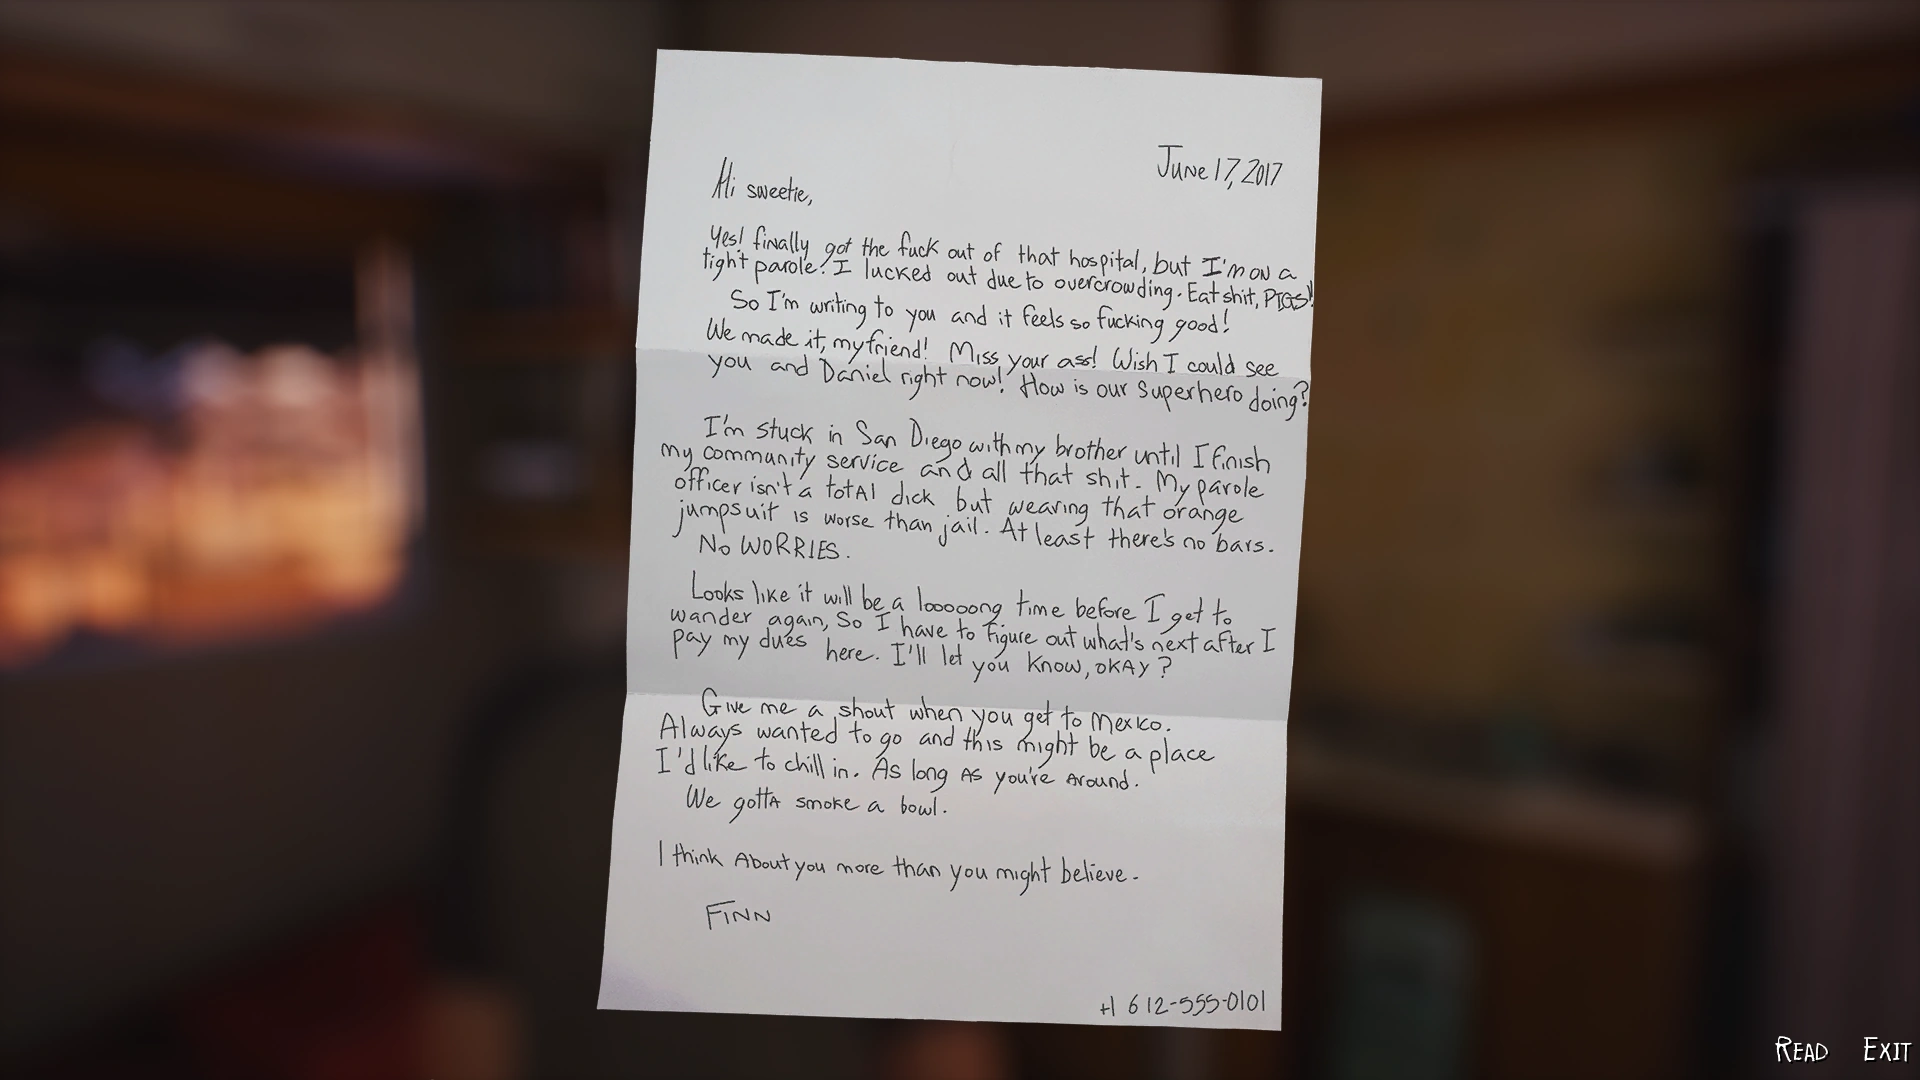 June 17, 2017
Hi sweetie,
Yes! finally got the fuck out of that hospital, but I'm on a
tight parole! I lucked out due to overcrowding. Eat shit, PIGS!
So I'm writing to you and it feels so fucking good!
We made it, my friend! Miss your ass! Wish I could see
you and Daniel right now! How is our superhero doing?
I'm stuck in San Diego with my brother until I finish
my community service and all that shit. My parole
officer isn't a totAl dick but wearing that orange
jumpsuit is worse than jail. At least there's no bars.
No WORRIES.
Looks like it will be a looooong time before I get to
wander again, so I have to figure out what's next after I
pay my dues here. I'll let you know, okay?
Give me a shout when you get to Mexico.
Always wanted to go and this might be a place
I'd like to chill in. As long as you're around.
We gotta smoke a bowl.
I think About you more than you might believe.
FINN
+1 612-555-0101
READ EXIT